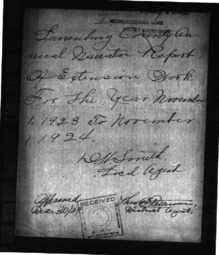 Lunenburg County An-
nual Narrative Report
Of Extension Work
For The Year November
1, 1923 To November
1, 1924.
Smith
Local Agent
Approved
Dec, 30/24
RECEIVED
District Agent.